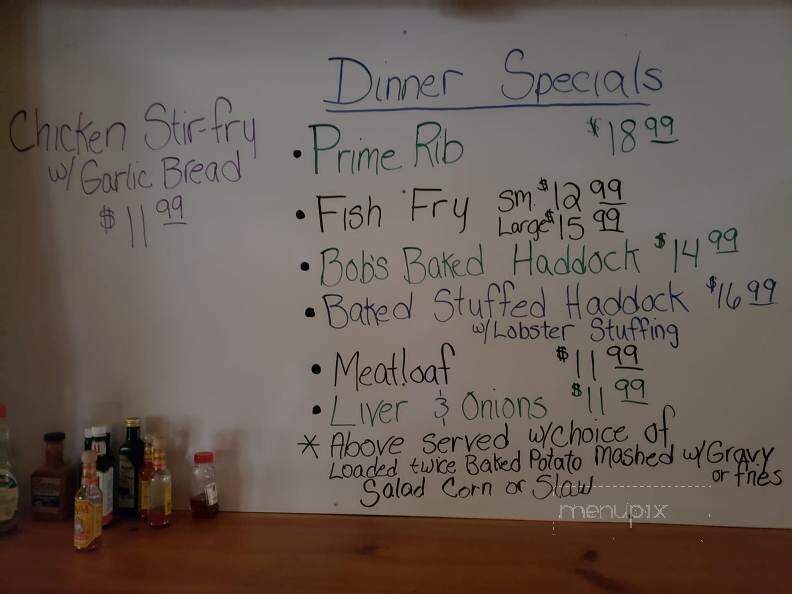 Dinner Specials
Chicken Stir-fry
w/ Garlic Bread
$11 99
• Prime Rib $18 99
• Fish Fry Sm. $12 99
Large $15 99
• Bob's Baked Haddock $14 99
• Baked Stuffed Haddock $16 99
w/Lobster Stuffing
• Meatloaf $11 99
• Liver & Onions $11 99
* Above served w/choice of
Loaded twice Baked Potato Mashed w/Gravy
or fries
Salad Corn or Slaw
menupix